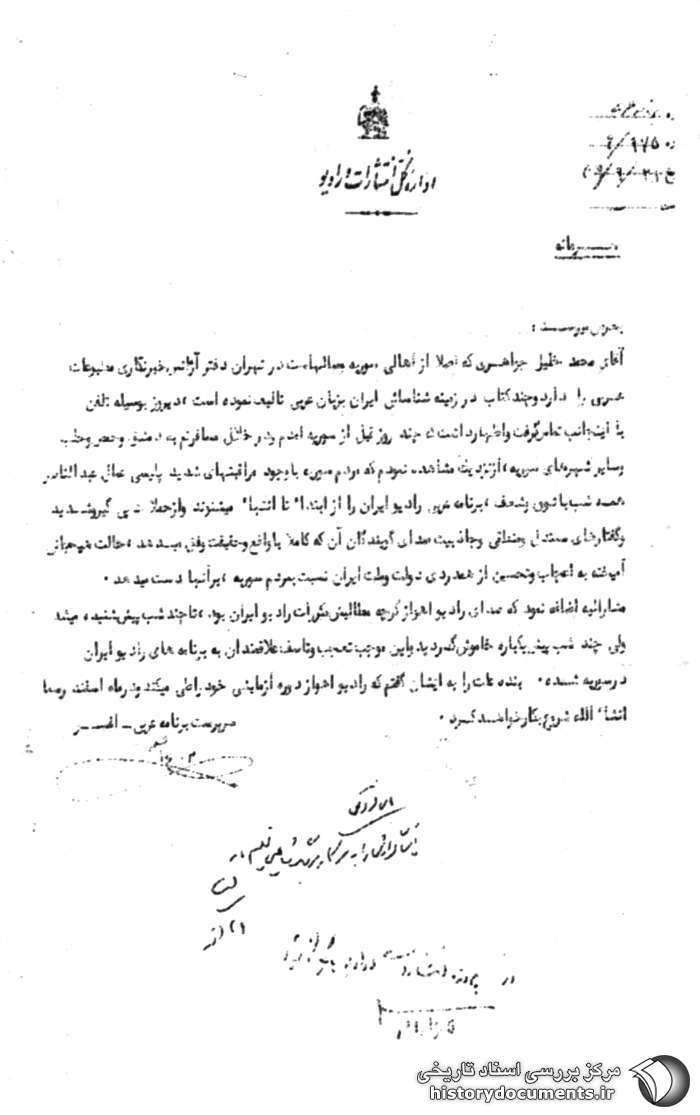 اداره کل انتشارات و رادیو
محرمانه
بعرض میرساند :
آقای محمد خلیل جواهری که اصلا از اهالی سوریه وسالهاست در تهران دفتر آژانس خبرنگاری مطبوعات
عربی را دارد وچند کتاب در زمینه شناسائی ایران بزبان عربی تالیف نموده است ، دیروز بوسیله تلفن
با اینجانب تماس گرفت واظهار داشت که چند روز قبل از سوریه آمدم ودر خلال مسافرتم به دمشق وحمص وحلب
وسایر شهرهای سوریه ، از نزدیک مشاهده نمودم که مردم سوریه با وجود مراقبتهای شدید پلیسی عمال عبدالناصر
همه شب با شوق وشعف ، برنامه عربی رادیو ایران را از ابتداء تا انتهاء میشنوند واز حملات گیرو شدید
وگفتارهای مستدل ومنطقی وجاذبیت صدای گویندگان آن که کاملا با واقع وحقیقت وفق میدهد ، حالت هیجانی
آمیخته به اعجاب وتحسین از همدردی دولت وملت ایران نسبت بمردم سوریه ، برآنها دست میدهد .
مشارالیه اضافه نمود که صدای رادیو اهواز گرچه مطالبش مکررات رادیو ایران بود ، تا چند شب پیش شنیده میشد
ولی چند شب پیش یکباره خاموش گردید واین موجب تعجب وتاسف علاقمندان به برنامه های رادیو ایران
در سوریه شده . بنده علت را به ایشان گفتم که رادیو اهواز دوره آزمایشی خود را طی میکند ودر ماه اسفند رسما
انشاء الله شروع بکار خواهد کرد .
سرپرست برنامه عربی - افسر
مرکز بررسی اسناد تاریخی
historydocuments.ir